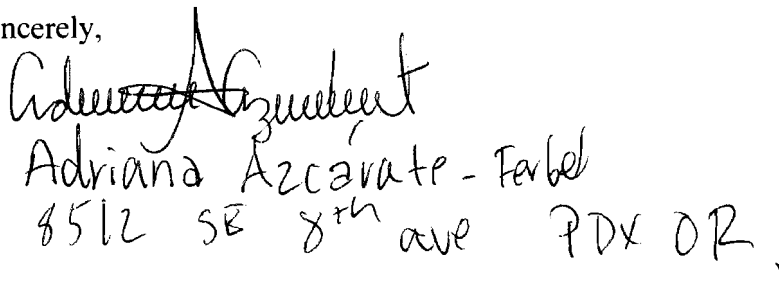 ncerely,
Adriana Azcárate-Ferbel
8512 SE 8th ave PDX OR